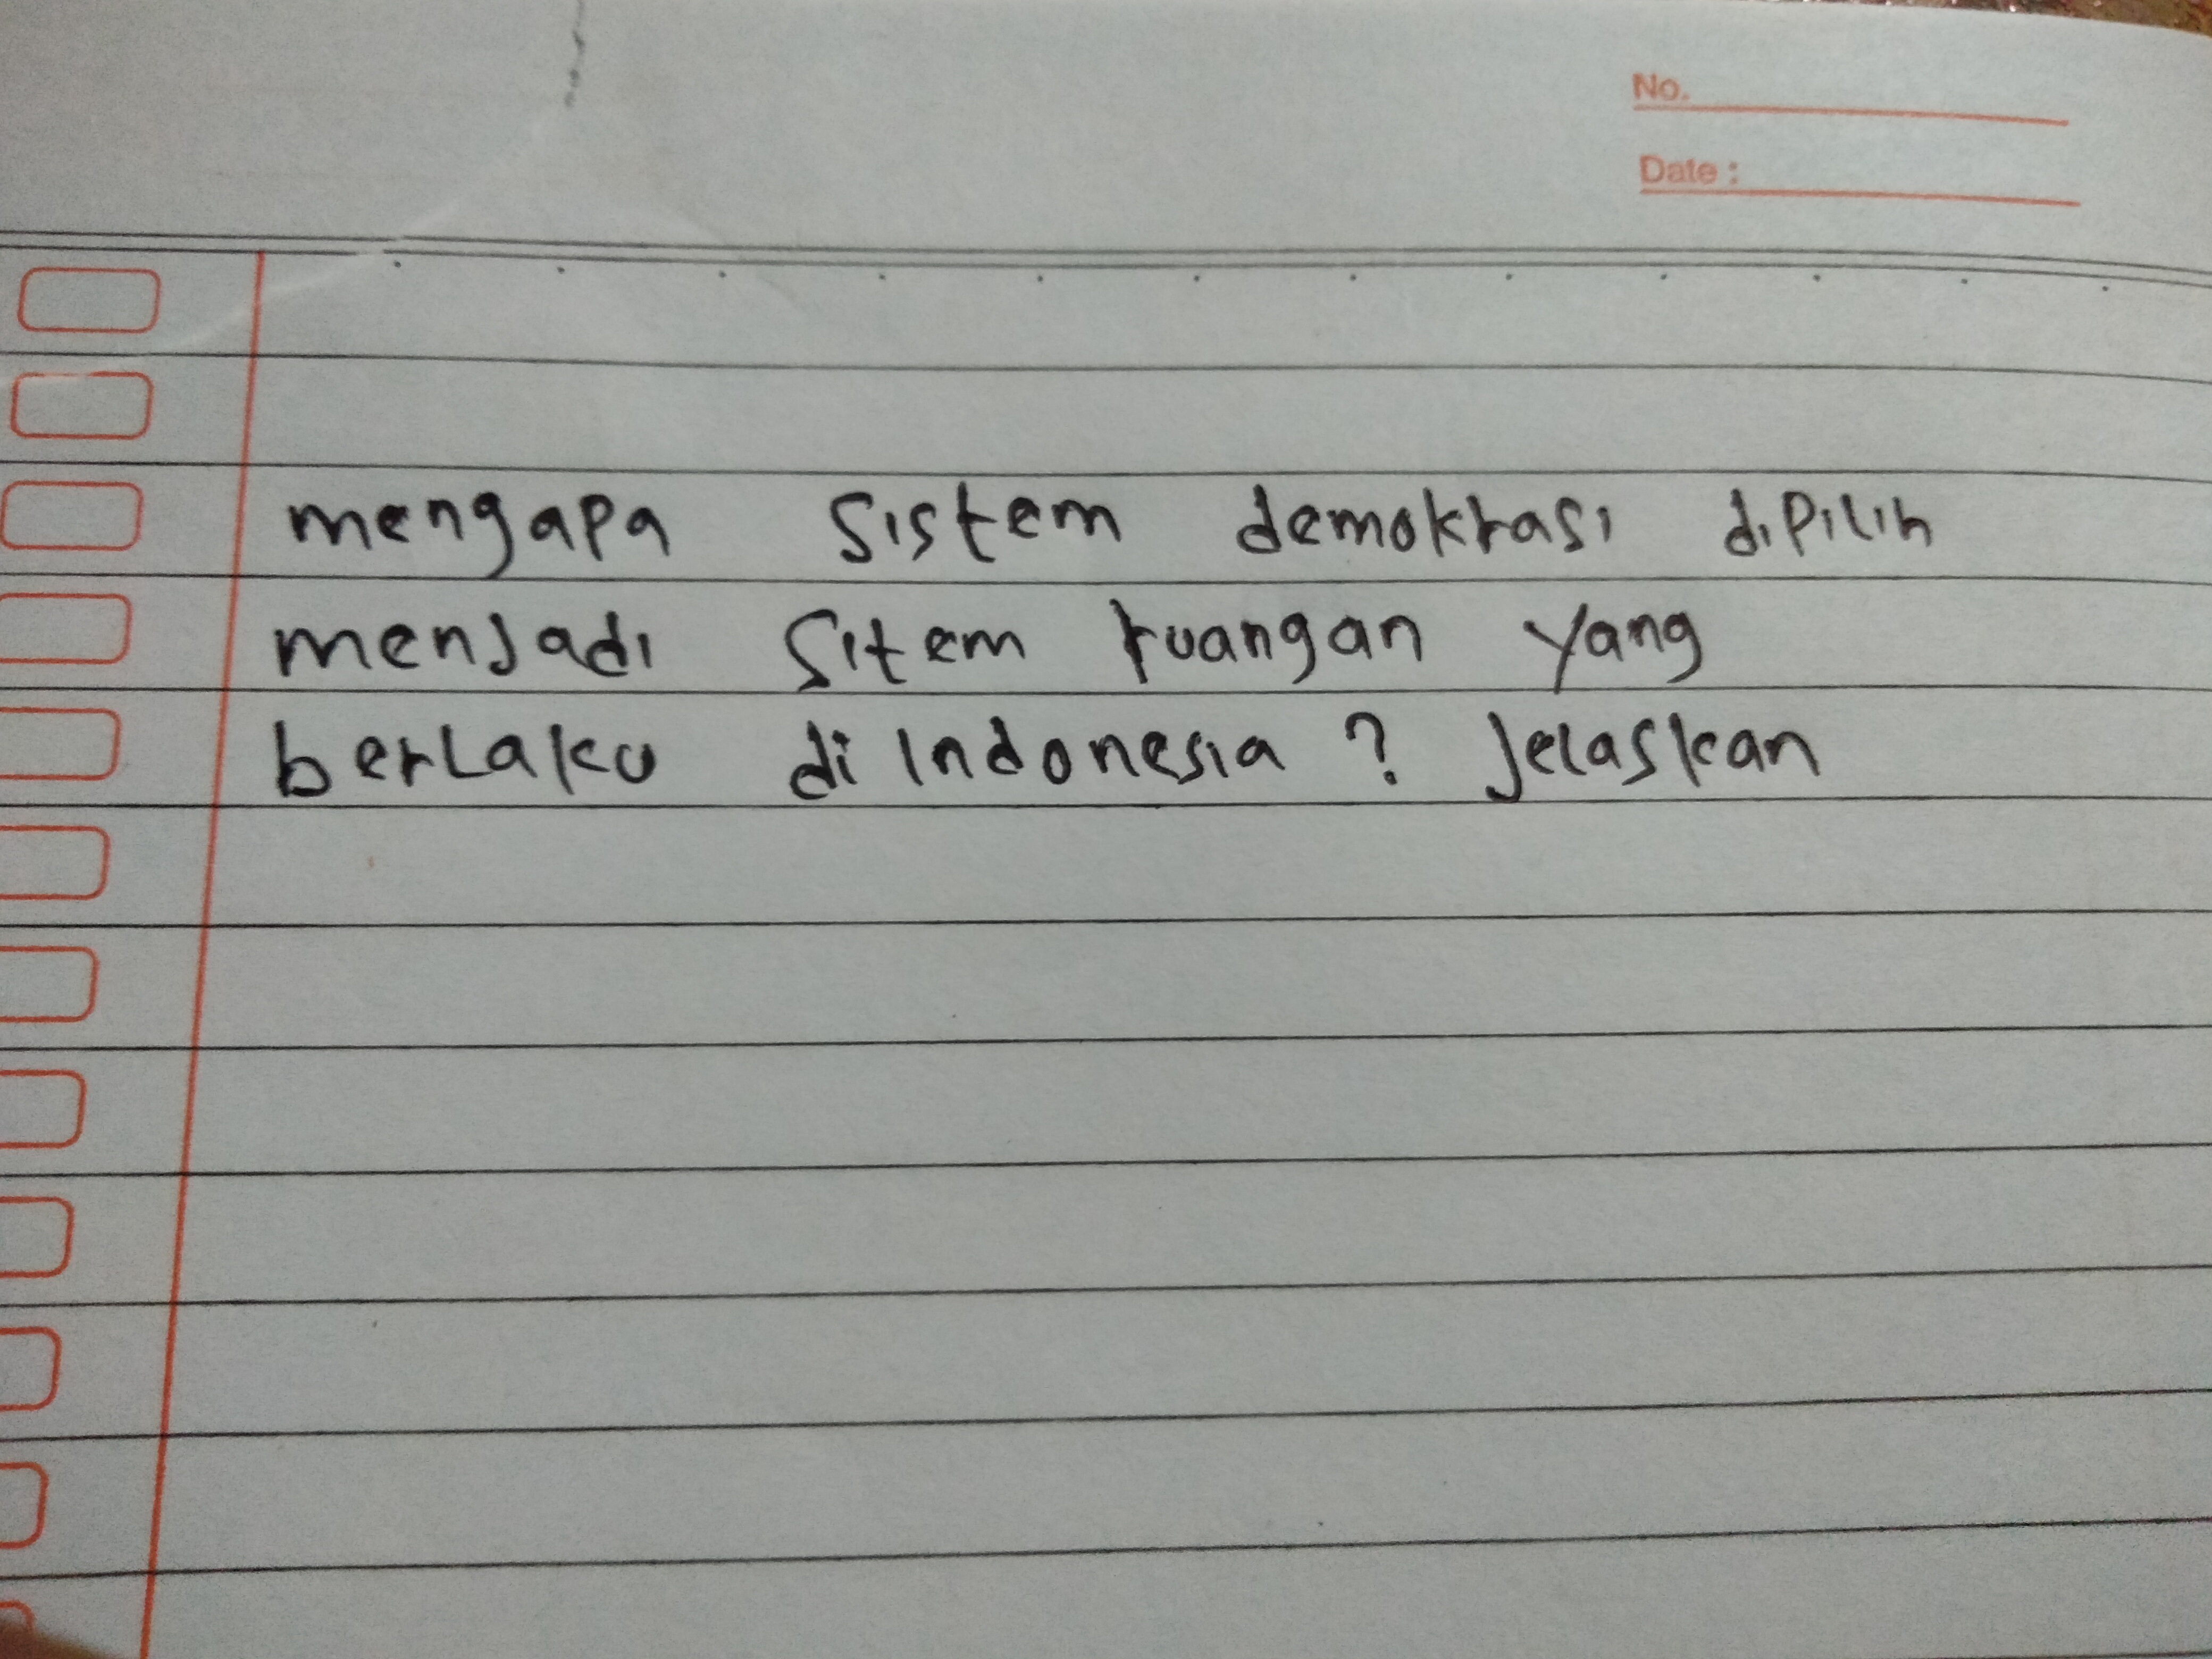 No.
Date :
mengapa sistem demokrasi dipilih
menjadi sitem ruangan yang
berlaku di Indonesia ? Jelaskan